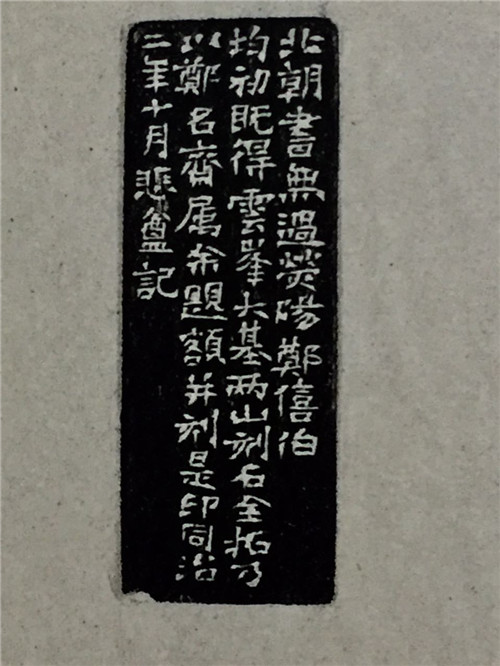 北朝書無過熒陽鄭僖伯
均初既得雲峯大基两山刻石全拓乃
以鄭名齋属余題額并刻是印同治
二年十月悲盦記